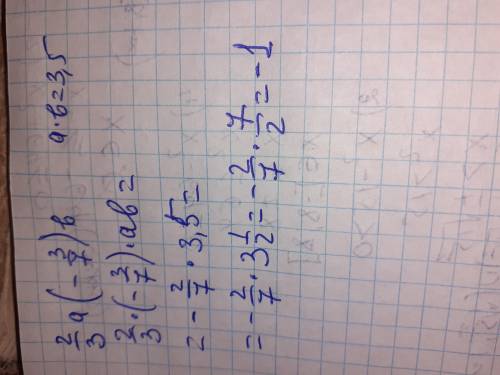 2/3 a (- 3/7) b     a·b=3,5
2/3 · (- 3/7) · ab =
= - 2/7 · 3,5 =
= - 2/7 · 3 1/2 = - 2/7 · 7/2 = - 1